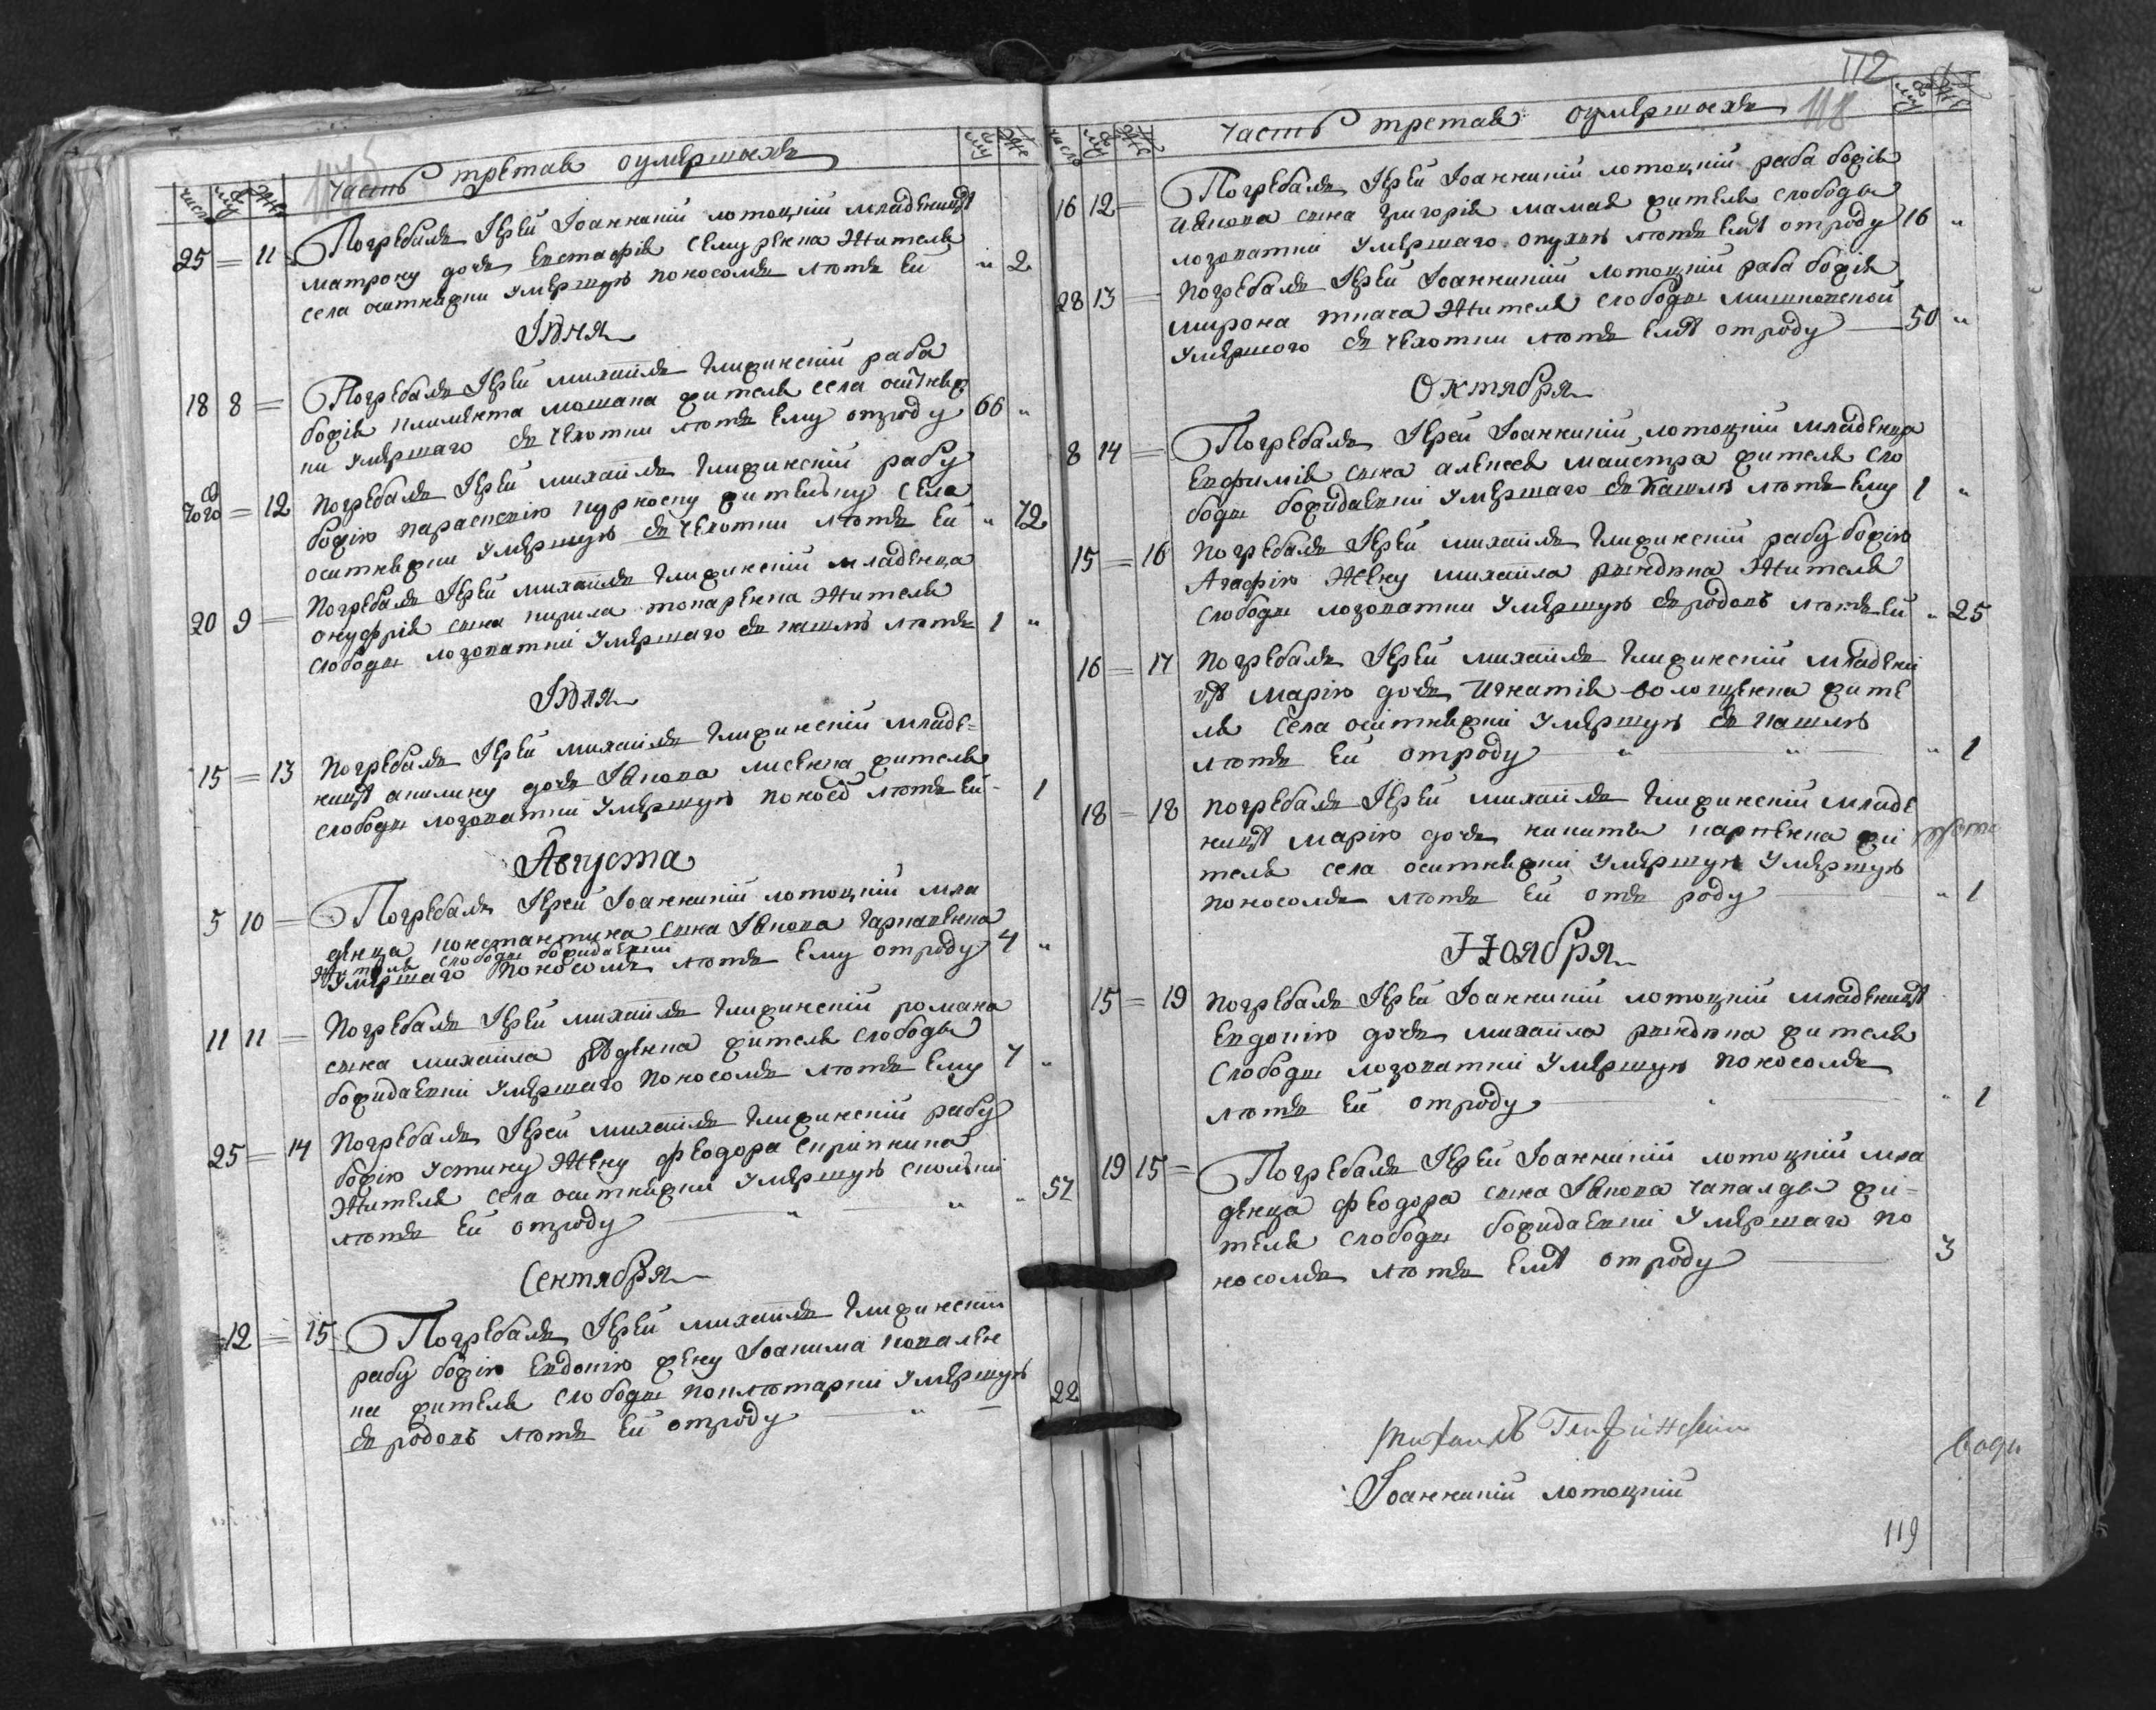 Часть третая оумершихъ
число му же му же
25 = 11 Погребалъ Іерей Іоанникій лотоцкій младеницу
матрону дочь Евстафія Семуренка Жителя
села оситняжки умершую поносомъ лѣтъ ей " 2
Іюня
18 8 = Погребалъ Іерей михаилъ Глижинскій раба
божія климента мошана жителя села оситняж
ки умершаго въ чехотки лѣтъ ему отроду 66 "
того = 12 Погребалъ Іерей михаилъ Глижинскій рабу
божію параскевію жителку села
оситняжки умершую въ чехотки лѣтъ ей " 72
20 9 = Погребалъ Іерей михаилъ Глижинскій младенца
онуфрія сына кирила токаренка Жителя
слободы лозоватки умершаго въ кашлѣ лѣтъ 1 "
Іюля
15 = 13 Погребалъ Іерей михаилъ Глижинскій младе=
ницу акилину дочь Іякова лисенка жителя
слободы лозоватки умершую лѣтъ ей - 1
Августа
5 10 = Погребалъ Іерей Іоанникій лотоцкій мла
денца константина сына Івнова
Жителя слободы божидаевки
умершаго поносомъ лѣтъ ему отроду 4 "
11 11 = Погребалъ Іерей михаилъ Глижинскій романа
сына михаила рѣденка жителя слободы
божидаевки умершаго поносомъ лѣтъ ему 7 "
25 = 14 Погребалъ Іерей михаилъ Глижинскій рабу
божію устину Жену феодора скрипника
Жителя села оситняжки умершую
лѣтъ ей отроду " " " 57
Сентября
12 = 15 Погребалъ Іерей михаилъ Глижинскій
рабу божію евдокію жену Іоакима ковален
ка жителя слободы умершую
въ родовѣ лѣтъ ей отроду " 22
112
118
Часть третая оумершихъ
число му же му же
16 12 = Погребалъ Іерей Іоанникій лотоцкій раба божія
Иякова сына григорія мамая жителя слободы
лозоватки умершаго опухлѣ лѣтъ ему отроду 16 "
28 13 = Погребалъ Іерей Іоанникій лотоцкій раба божія
мирона ткача Жителя слободы
умершого въ чехотки лѣтъ ему отроду 50 "
Октября
8 14 = Погребалъ Іерей Іоанникій лотоцкій младенца
Евфимія сына алексея маистра жителя сло
боды божидаевки умершаго въ кашлѣ лѣтъ ему 1 "
15 = 16 Погребалъ Іерей михаилъ Глижинскій рабу божію
Агафію Жену михаила Жителя
слободы лозоватки умершую въ родовѣ лѣтъ ей " 25
16 = 17 Погребалъ Іерей михаилъ Глижинскій младени
цу марію дочь игнатія волощенка жите
ля села оситняжки умершую въ кашлѣ
лѣтъ ей отроду " " " 1
18 = 18 Погребалъ Іерей михаилъ Глижинскій младе
ницу марію дочь никиты жи
теля села оситняжки умершую умершую
поносомъ лѣтъ ей отъ роду " 1
Ноября
15 = 19 Погребалъ Іерей Іоанникій лотоцкій младеницу
евдокію дочь михаила жителя
слободы лозоватки умершую поносомъ
лѣтъ ей отроду " " 1
19 15 = Погребалъ Іерей Іоанникій лотоцкій мла
денца феодора сына Івнова чапалды жи=
теля слободы божидаевки умершаго по
носомъ лѣтъ ему отроду 3
Михаилъ Глижинскій
Іоанникій лотоцкій
119